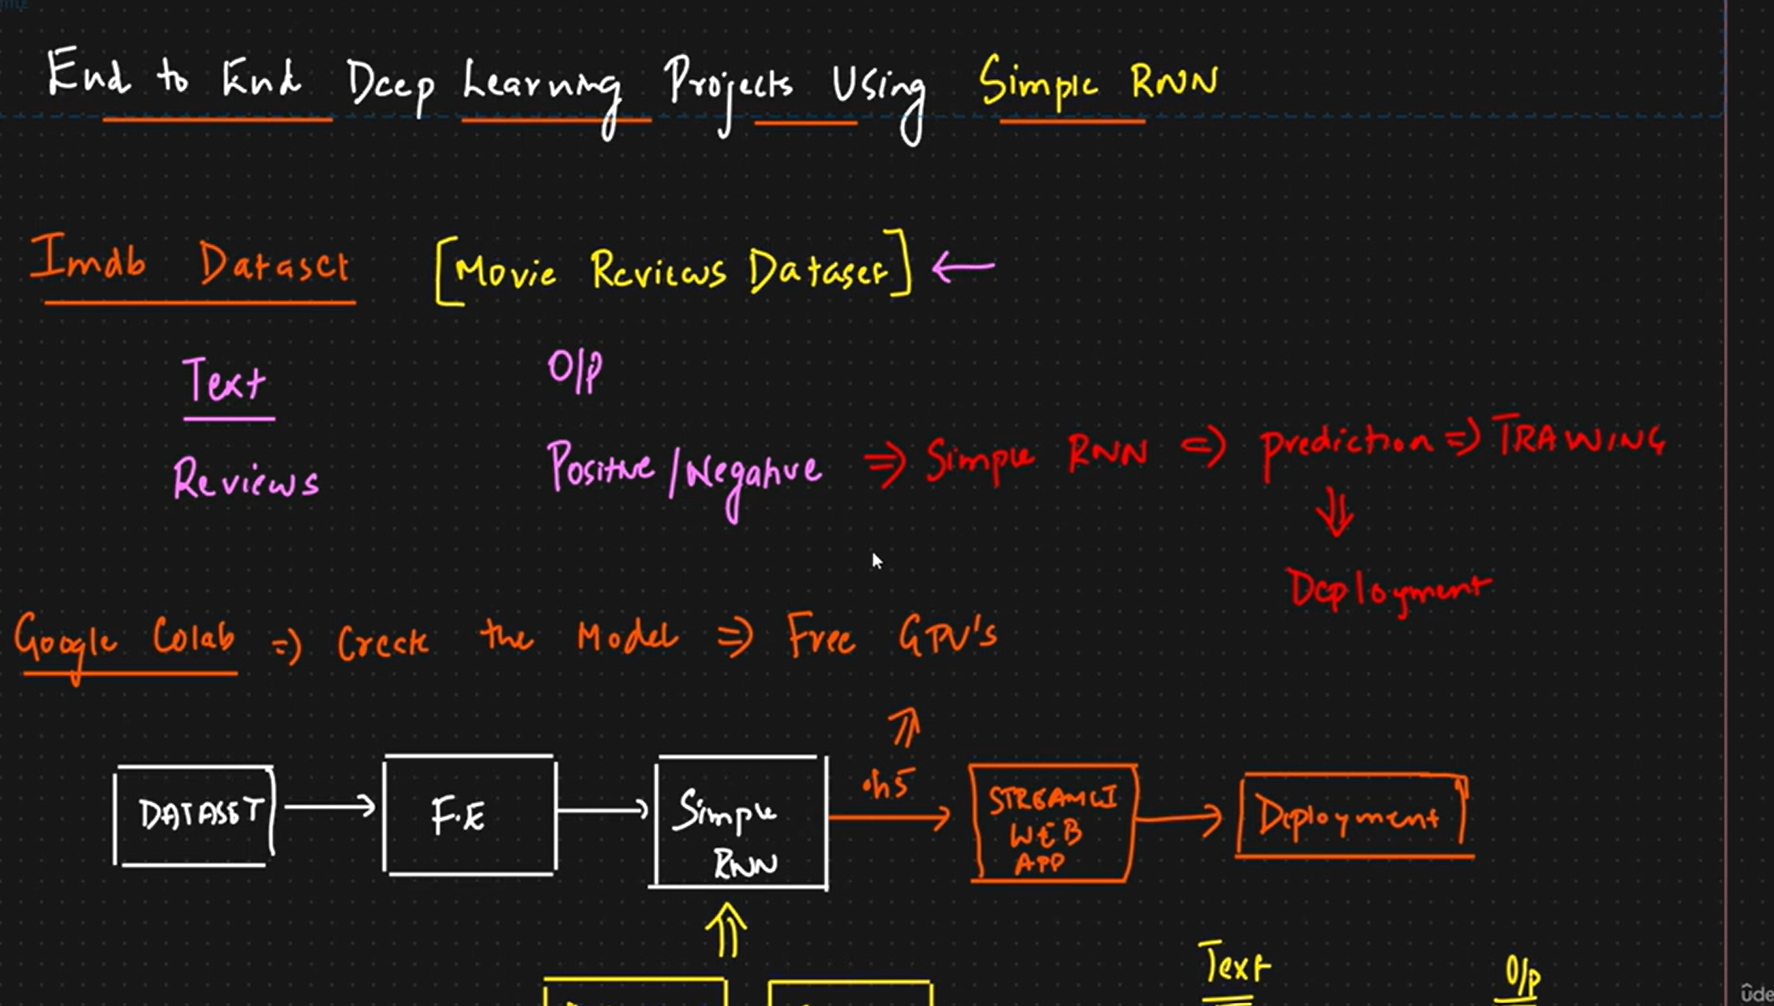 TITLE
End to End Deep Learning Projects Using Simple RNN
Imdb Dataset [Movie Reviews Dataset] ←
Text O/P
Reviews Positive/Negative ⇒ Simple RNN ⇒ prediction ⇒ TRAINING
⇓
Deployment
Google Colab ⇒ Create the Model ⇒ Free GPU's
DATASET → F.E → Simple RNN → .h5 → STREAMLI WEB APP → Deployment
Text O/P
ûde